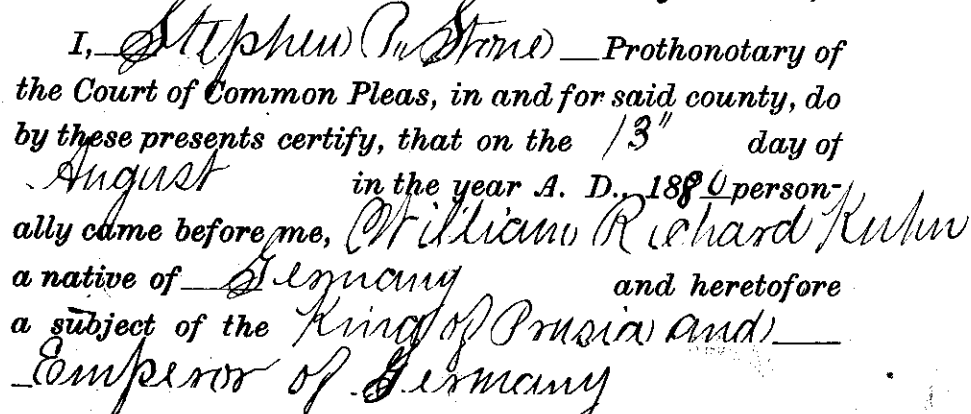 I, Stephen P. Stone Prothonotary of
the Court of Common Pleas, in and for said county, do
by these presents certify, that on the 13" day of
August in the year A. D., 1880 person-
ally came before me, William Richard Kuhn
a native of Germany and heretofore
a subject of the King of Prusia and
Emperor of Germany